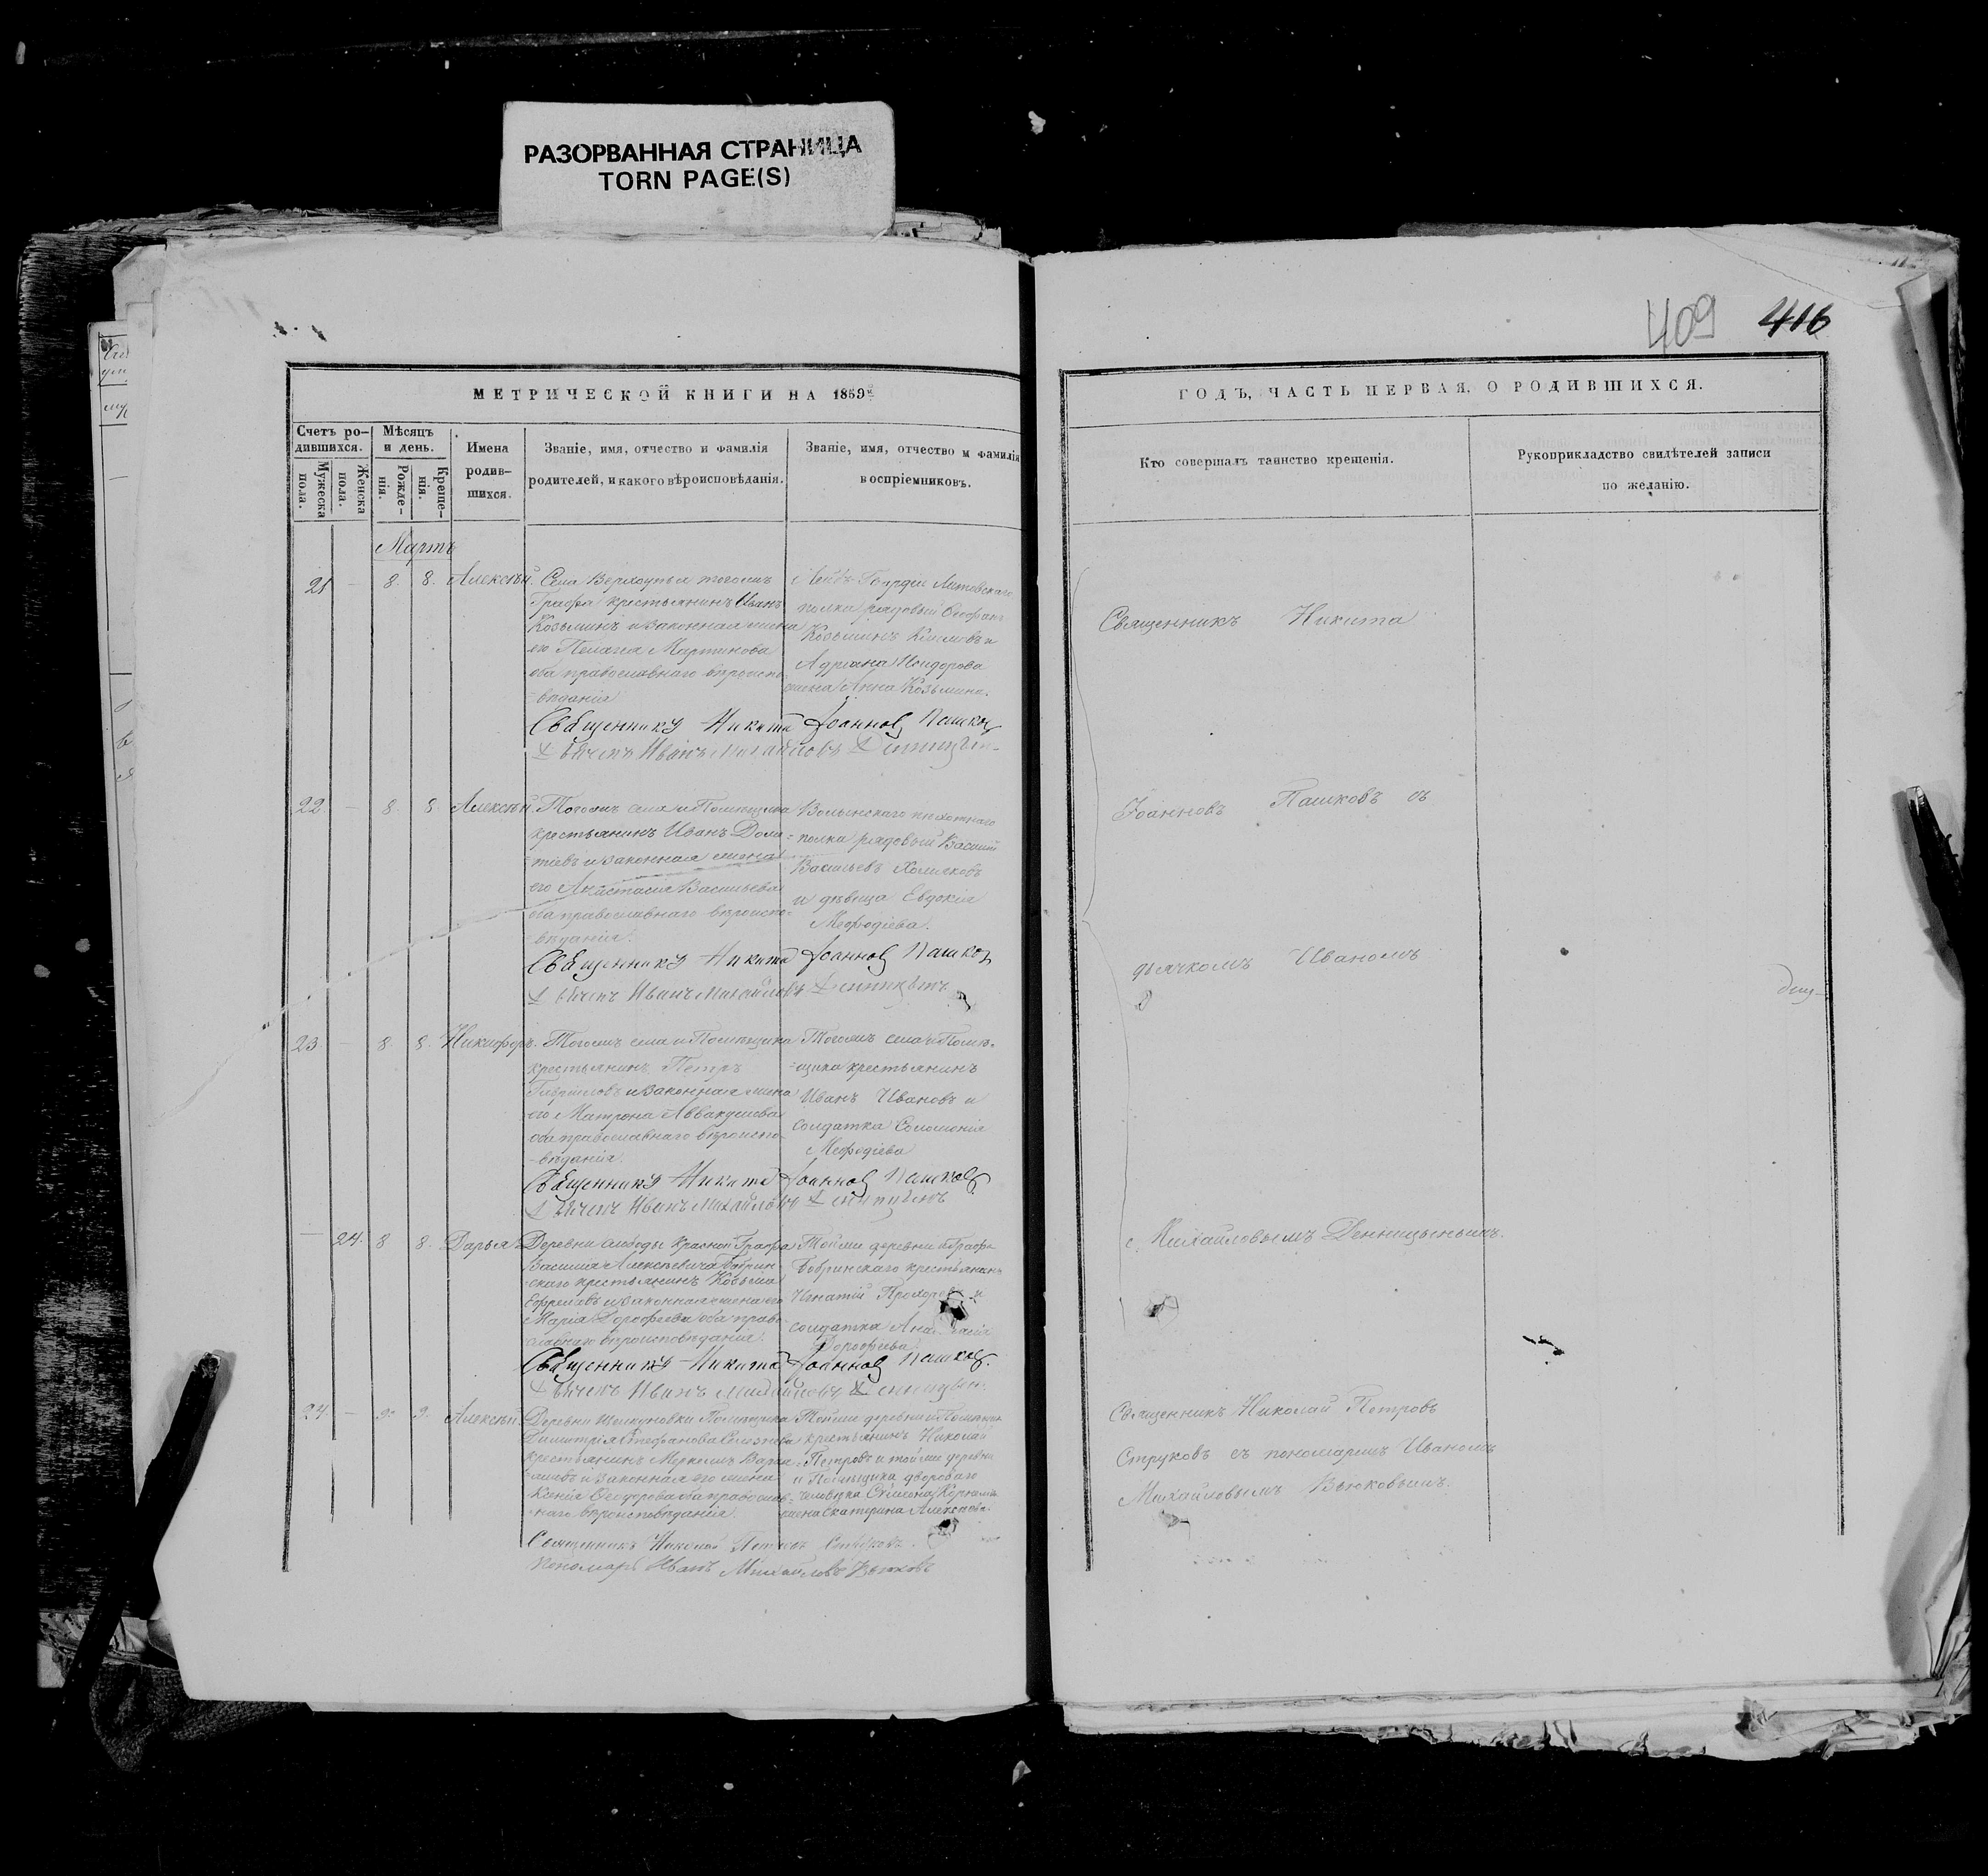 РАЗОРВАННАЯ СТРАНИЦА
TORN PAGE(S)
409 416
МЕТРИЧЕСКОЙ КНИГИ НА 1859
Счетъ ро-
дившихся.
Мужеска
пола.
Женска
пола.
Мѣсяцъ
и день.
Рожде-
нія.
Креще-
нія.
Имена
родив-
шихся.
Званіе, имя, отчество и фамилія
родителей, и какого вѣроисповѣданія.
Званіе, имя, отчество и фамилія
воспріемниковъ.
Мартъ
21 — 8. 8. Алексѣй.
Села Верхоупья тогожъ
Графа крестьянинъ Иванъ
Козьминъ и законная жена
его Пелагея Мартинова
оба православнаго вѣроиспо-
-вѣданія
Лейбъ-Гвардіи Литовскаго
полка рядовый
Козьминъ и
Адріана Исидорова
жена Анна Козьмина.
Священникъ Никита Іоанновъ Пашковъ
Дьячекъ Иванъ Михайловъ
22 — 8. 8. Алексѣй.
Тогожъ села и Помѣщика
крестьянинъ Иванъ
и законная жена
его Анастасія Васильева
оба православнаго вѣроиспо-
-вѣданія.
Волынскаго пѣхотнаго
полка рядовый Василій
Васильевъ
и дѣвица Евдокія
Меѳодіева.
Священникъ Никита Іоанновъ Пашковъ
Дьячекъ Иванъ Михайловъ
23 — 8. 8. Никифоръ.
Тогожъ села и Помѣщика
крестьянинъ Петръ
Гавриловъ и законная жена
его Матрона Аввакумова
оба православнаго вѣроиспо-
-вѣданія.
Тогожъ села и Помѣ-
-щика крестьянинъ
Иванъ Ивановъ и
солдатка Соломонія
Меѳодіева
Священникъ Никита Іоанновъ Пашковъ.
Дьячекъ Иванъ Михайловъ
— 24. 8 8. Дарья.
Деревни слободы Красной Графа
Василія Алексѣевича Бобрин-
-скаго крестьянинъ Козьма
Ефремовъ и законная жена его
Марія Дороѳеева оба право-
славнаго вѣроисповѣданія.
Тойже деревни и Графа
Бобринскаго крестьянинъ
Игнатій
солдатка
Дороѳеева
Священникъ Никита Іоанновъ Пашковъ.
Дьячекъ Иванъ Михайловъ
24 — 9. 9. Алексѣй.
Деревни Помѣщика
Димитрія Стефанова
крестьянинъ
и законная его жена
Ксенія Ѳеодорова оба православ-
-наго вѣроисповѣданія.
Тойже деревни и Помѣщика
крестьянинъ Николай
Петровъ и тойже деревни
и Помѣщика двороваго
человѣка
жена Екатерина Алексѣева.
Священникъ Николай Петровъ Струковъ.
Пономарь Иванъ Михайловъ Вьюковъ
ГОДЪ, ЧАСТЬ ПЕРВАЯ, О РОДИВШИХСЯ.
Кто совершалъ таинство крещенія.
Рукоприкладство свидѣтелей записи
по желанію.
Священникъ Никита
Іоанновъ Пашковъ съ
дьячкомъ Иваномъ
Михайловымъ Денницынымъ.
Священникъ Николай Петровъ
Струковъ съ пономаремъ Иваномъ
Михайловымъ Вьюковымъ.